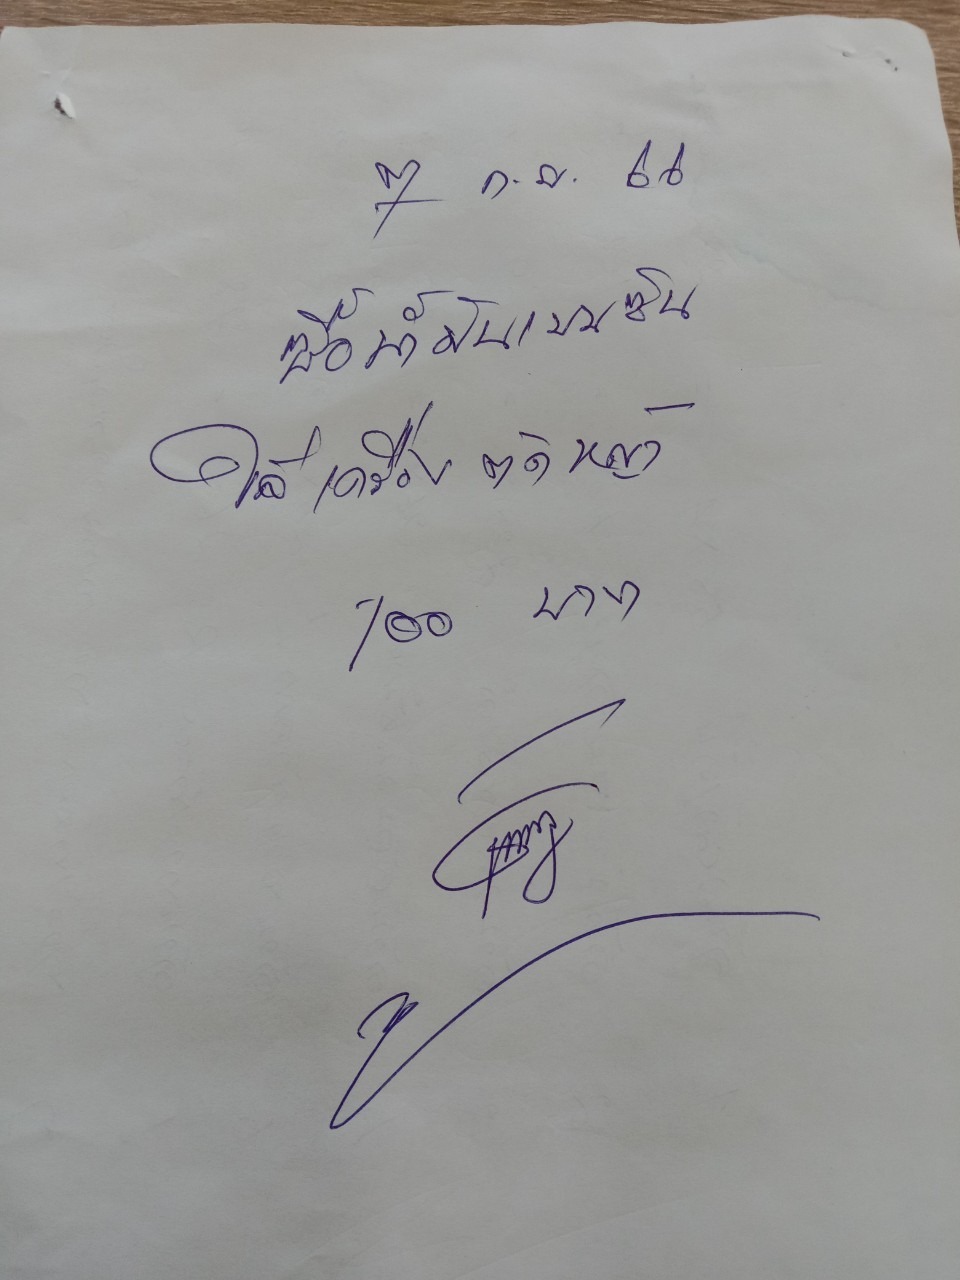 7 ก.ย. 66
ซื้อน้ำมันเบนซิน
ใส่เครื่องตัดหญ้า
100 บาท